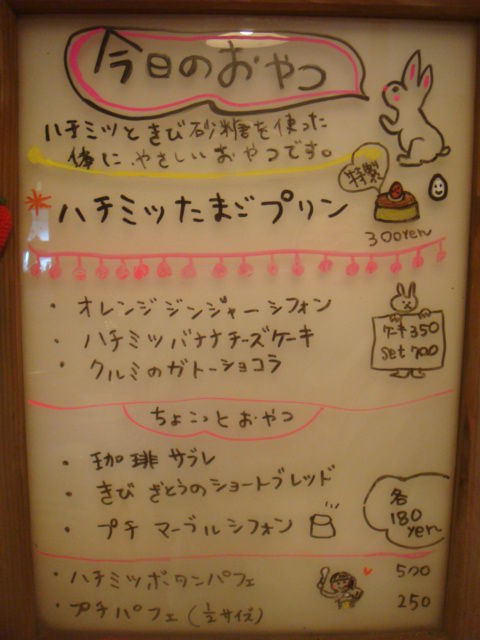 今日のおやつ
ハチミツときび砂糖を使った
体にやさしいおやつです。
特製
ハチミツたまごプリン
300yen
・オレンジジンジャーシフォン
・ハチミツバナナチーズケーキ
・クルミのガトーショコラ
ケーキ350
set 700
ちょこっとおやつ
・珈琲サブレ
・きびざとうのショートブレッド
・プチマーブルシフォン
各
180
yen
・ハチミツボタンパフェ 500
・プチパフェ(1/2サイズ) 250